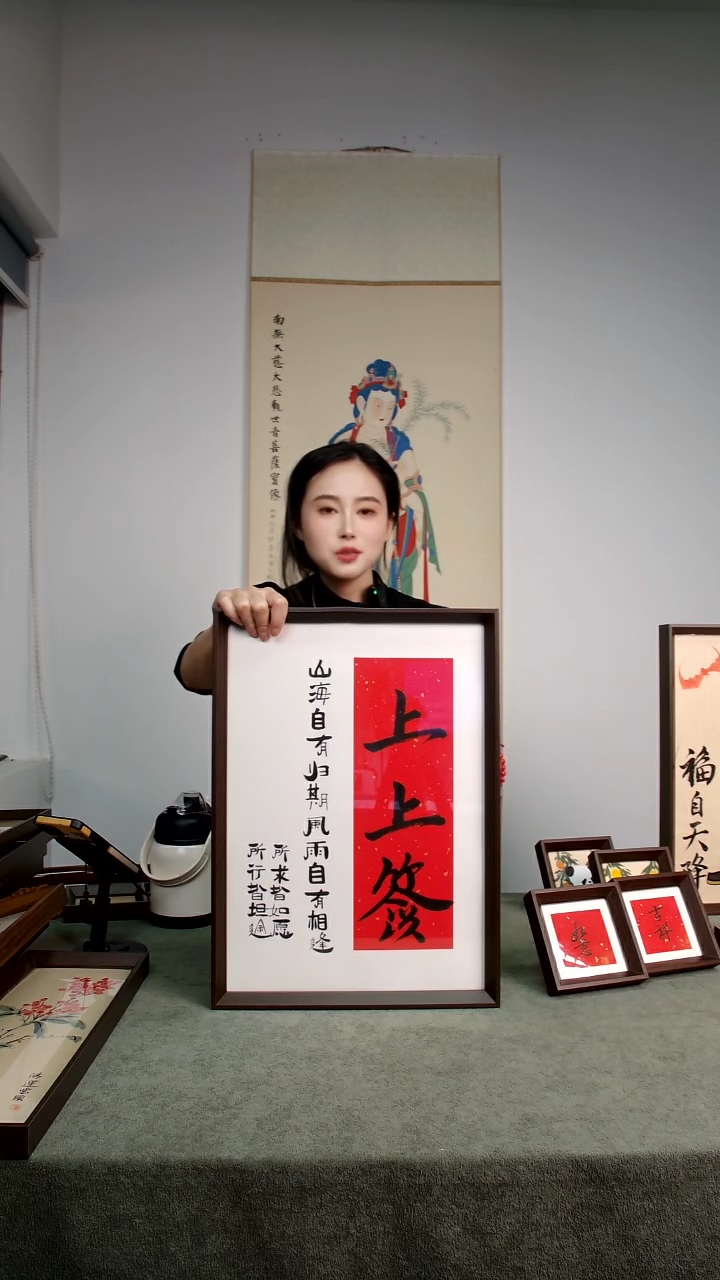 南無大慈大悲觀世音菩薩寶像
上上签
山海自有归期风雨自有相逢
所求皆如愿
所行皆坦途
福自天降
如意
吉祥